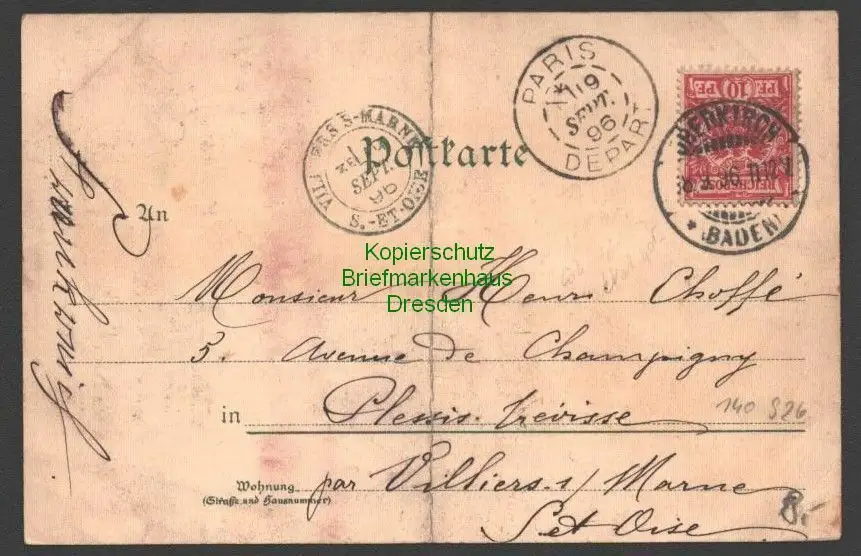 Postkarte
PARIS
19
SEPT.
96
DEPART
VILLIERS S-MARNE
SEPT.
96
S.-ET-OISE
10 PF
REICHSPOST
OBERKIRCH
(BADEN)
An
Kopierschutz
Briefmarkenhaus
Dresden
Monsieur Henri Choffé
5. Avenue de Champigny
in Plessis-Trévisse
140 S26
Wohnung
(Straße und Hausnummer)
par Villiers s/ Marne
S et Oise
8.-